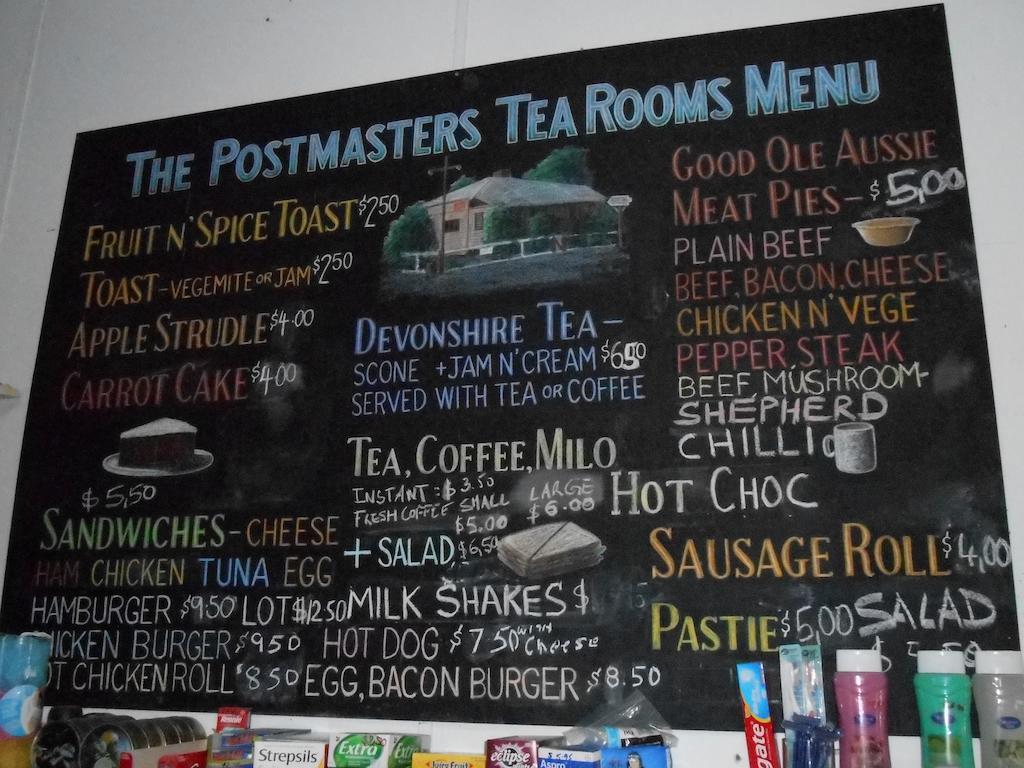 THE POSTMASTERS TEA ROOMS MENU
FRUIT N' SPICE TOAST $2.50
TOAST - VEGEMITE OR JAM $2.50
APPLE STRUDLE $4.00
CARROT CAKE $4.00
$5,50
SANDWICHES - CHEESE
HAM CHICKEN TUNA EGG
HAMBURGER $9.50 LOT $12.50
CHICKEN BURGER $9.50
HOT CHICKEN ROLL $8.50
DEVONSHIRE TEA -
SCONE + JAM N' CREAM $6.50
SERVED WITH TEA OR COFFEE
TEA, COFFEE, MILO
INSTANT : $3.50
FRESH COFFEE SMALL LARGE
$5.00 $6.00
HOT CHOC
+ SALAD $6.50
MILK SHAKES $
HOT DOG $7.50 WITH Cheese
EGG, BACON BURGER $8.50
GOOD OLE AUSSIE
MEAT PIES - $5,00
PLAIN BEEF
BEEF, BACON, CHEESE
CHICKEN N' VEGE
PEPPER STEAK
BEEF, MUSHROOM -
SHEPHERD
CHILLI
SAUSAGE ROLL $4,00
PASTIE $5,00 SALAD
Strepsils
Extra
Juicy Fruit
eclipse
Aspro